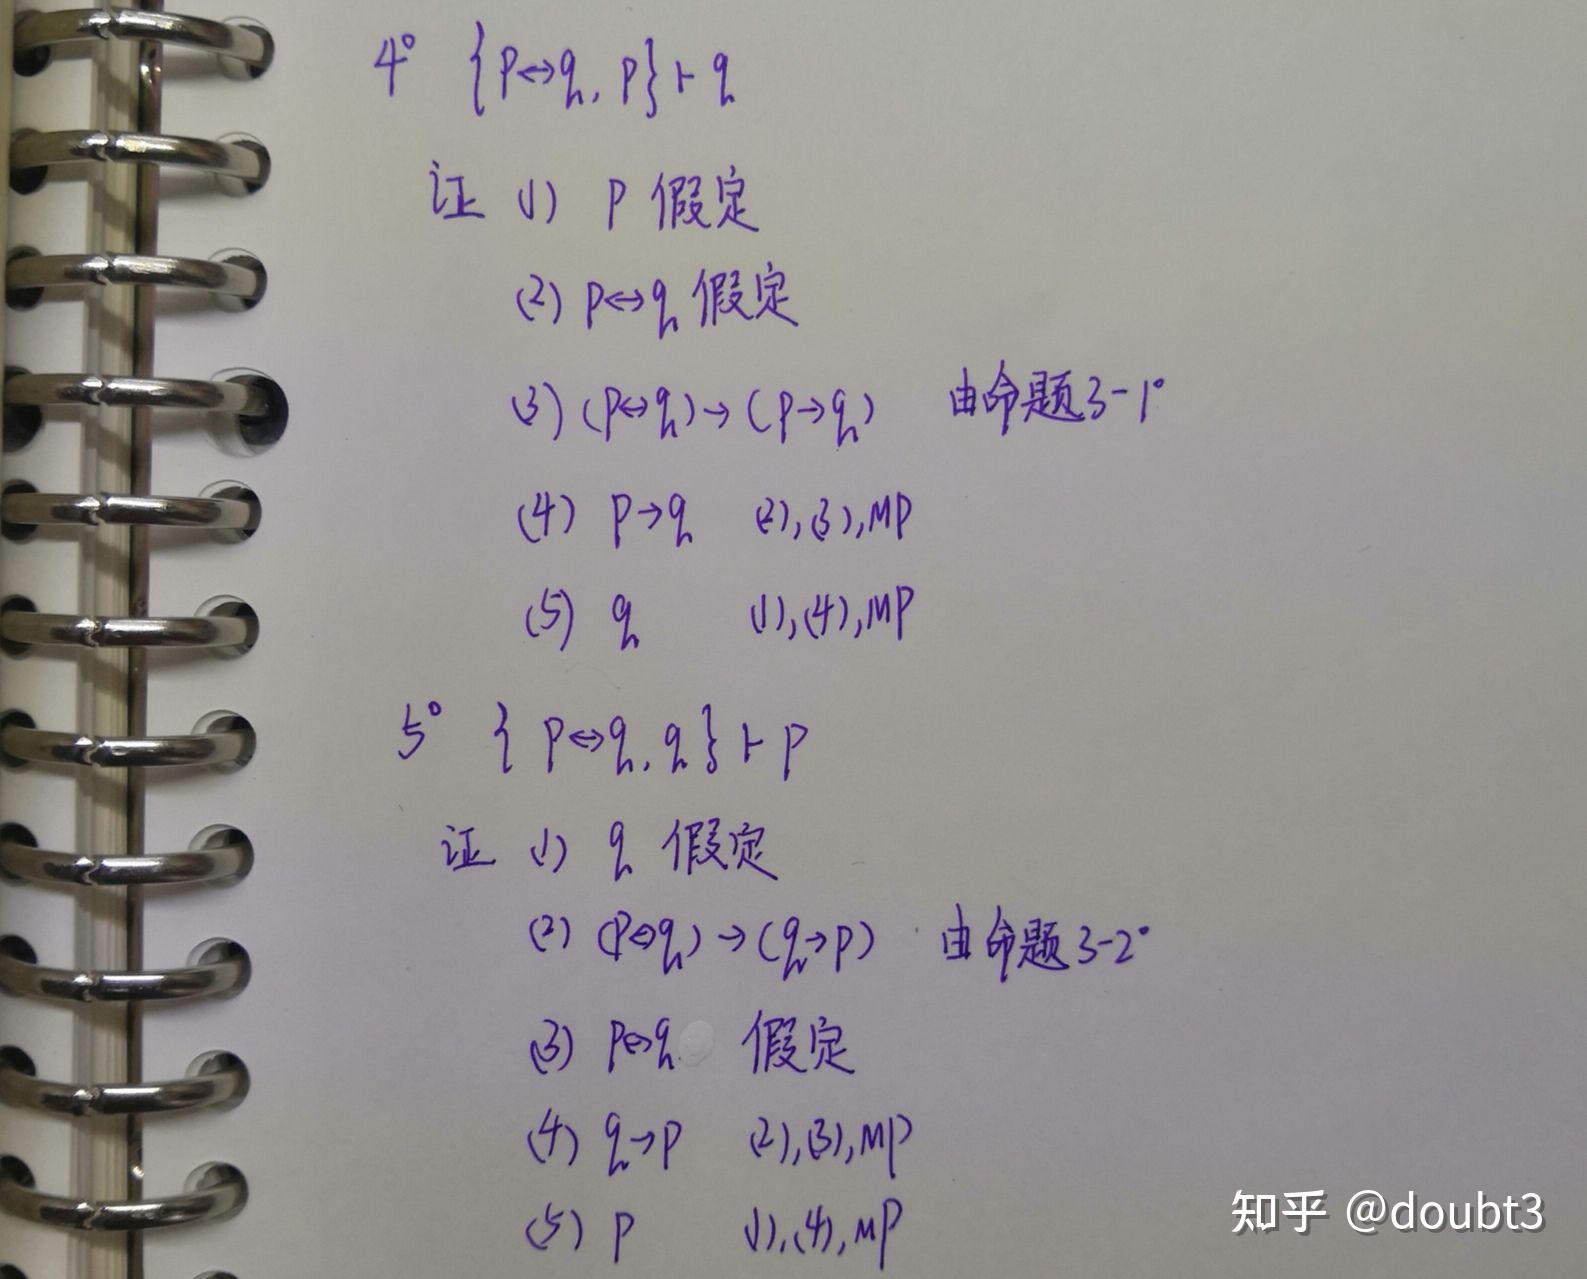 4° {p↔q, p}⊢q
证 (1) p 假定
(2) p↔q 假定
(3) (p↔q)→(p→q) 由命题3-1°
(4) p→q (2),(3),MP
(5) q (1),(4),MP
5° {p↔q, q}⊢p
证 (1) q 假定
(2) (p↔q)→(q→p) 由命题3-2°
(3) p↔q 假定
(4) q→p (2),(3),MP
(5) p (1),(4),MP
知乎 @doubt3